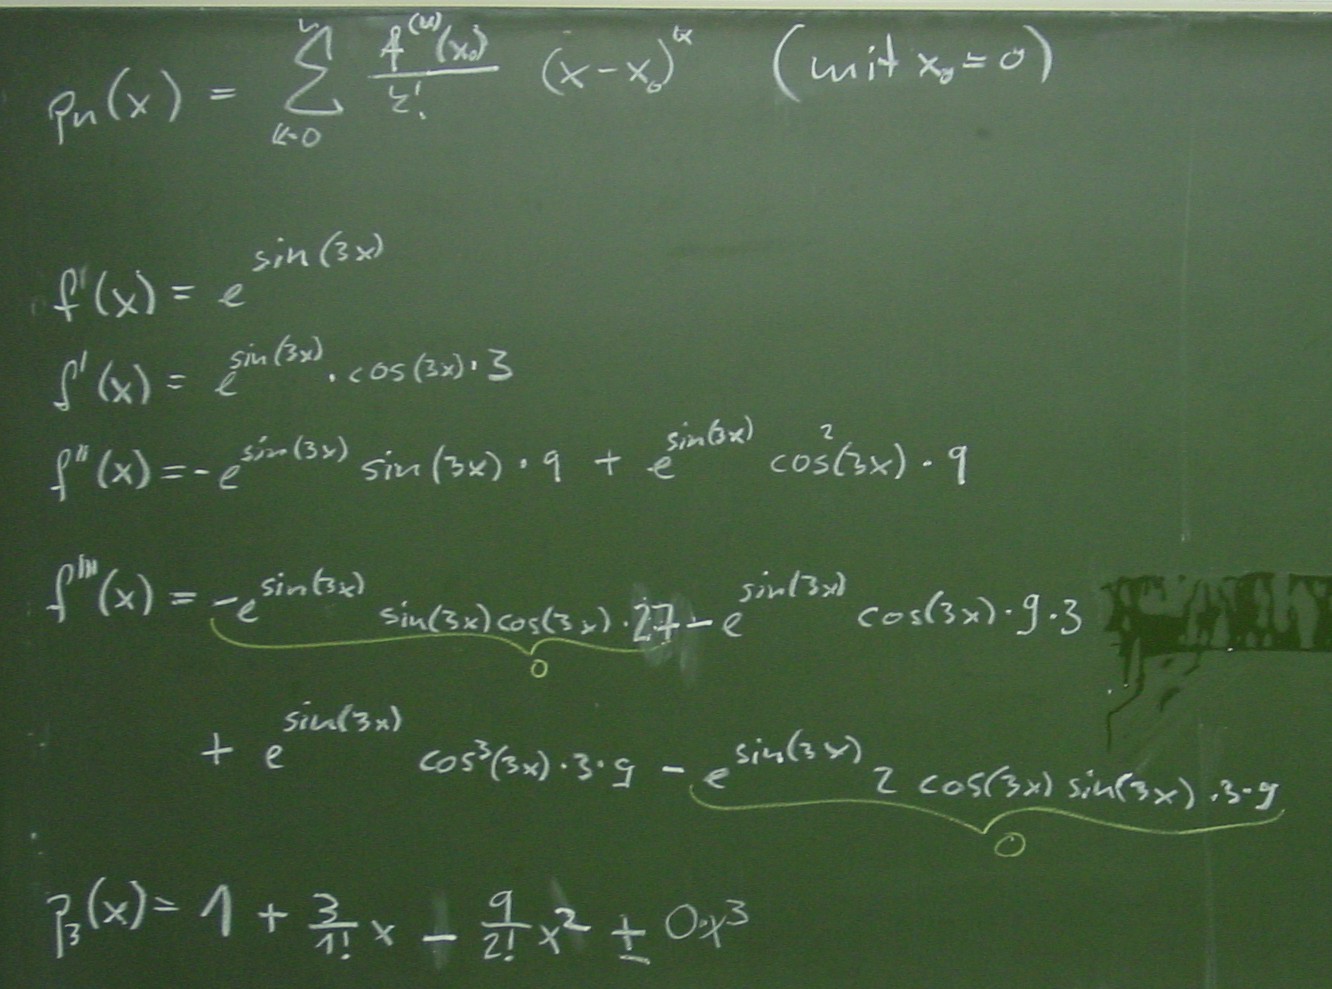 pn(x) = ∑_{k=0}^{n} f^{(k)}(x₀)/k! (x-x₀)^k (mit x₀=0)
f'(x) = e^{sin(3x)}
f'(x) = e^{sin(3x)} · cos(3x) · 3
f''(x) = -e^{sin(3x)} sin(3x) · 9 + e^{sin(3x)} cos²(3x) · 9
f'''(x) = -e^{sin(3x)} sin(3x) cos(3x) · 27 - e^{sin(3x)} cos(3x) · 9 · 3
0
+ e^{sin(3x)} cos³(3x) · 3 · 9 - e^{sin(3x)} 2 cos(3x) sin(3x) · 3 · 9
0
p₃(x) = 1 + 3/1! x - 9/2! x² ± 0·x³